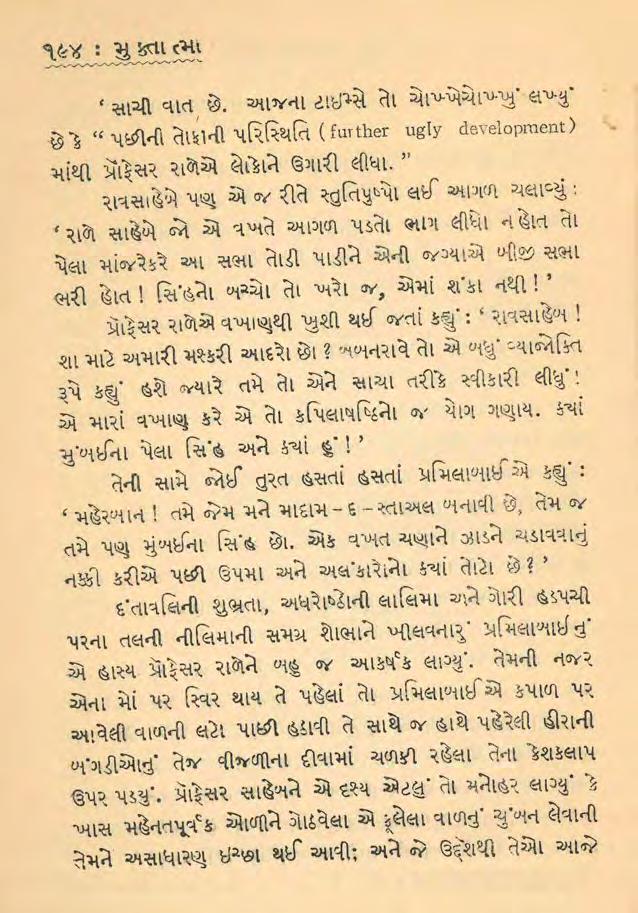 ૧૯૪ : મુક્તાત્મા
‘ સાચી વાત છે. આજના ટાઇમ્સે તો ચોખ્ખેચોખ્ખું લખ્યું
છે કે “ પછીની તોફાની પરિસ્થિતિ ( further ugly development )
માંથી પ્રૉફેસર રાળેએ લોકોને ઉગારી લીધા. ”
રાવસાહેબે પણ એ જ રીતે સ્તુતિપુષ્પો લઈ આગળ ચલાવ્યું :
‘ રાળે સાહેબે જો એ વખતે આગળ પડતો ભાગ લીધો ન હોત તો
પેલા માંજરેકરે આ સભા તોડી પાડીને એની જગ્યાએ બીજી સભા
ભરી હોત ! સિંહનો બચ્ચો તો ખરો જ, એમાં શંકા નથી ! ’
પ્રૉફેસર રાળેએ વખાણથી ખુશી થઈ જતાં કહ્યું : ‘ રાવસાહેબ !
શા માટે અમારી મશ્કરી આદરો છો ? બબનરાવે તો એ બધું વ્યાજોક્તિ
રૂપે કહ્યું હશે જ્યારે તમે તો એને સાચા તરીકે સ્વીકારી લીધું !
એ મારાં વખાણ કરે એ તો કપિલાષષ્ઠિનો જ યોગ ગણાય. ક્યાં
મુંબઈના પેલા સિંહ અને ક્યાં હું ! ’
તેની સામે જોઈ તુરત હસતાં હસતાં પ્રમિલાબાઈએ કહ્યું :
‘ મહેરબાન ! તમે જેમ મને માદામ – દ – સ્તાઅલ બનાવી છે, તેમ જ
તમે પણ મુંબઈના સિંહ છો. એક વખત ચણાને ઝાડને ચડાવવાનું
નક્કી કરીએ પછી ઉપમા અને અલંકારોનો ક્યાં તોટો છે ? ’
દંતાવલિની શુભ્રતા, અધરોષ્ઠોની લાલિમા અને ગોરી હડપચી
પરના તલની નીલિમાની સમગ્ર શોભાને ખીલવનારું પ્રમિલાબાઈનું
એ હાસ્ય પ્રૉફેસર રાળેને બહુ જ આકર્ષક લાગ્યું. તેમની નજર
એના મોં પર સ્થિર થાય તે પહેલાં તો પ્રમિલાબાઈએ કપાળ પર
આવેલી વાળની લટો પાછી હડાવી તે સાથે જ હાથે પહેરેલી હીરાની
બંગડીઓનું તેજ વીજળીના દીવામાં ચળકી રહેલા તેના કેશકલાપ
ઉપર પડયું. પ્રૉફેસર સાહેબને એ દૃશ્ય એટલું તો મનોહર લાગ્યું કે
ખાસ મહેનતપૂર્વક ઓળીને ગોઠવેલા એ ફૂલેલા વાળનું ચુંબન લેવાની
તેમને અસાધારણ ઇચ્છા થઈ આવી; અને જે ઉદ્દેશથી તેઓ આજે